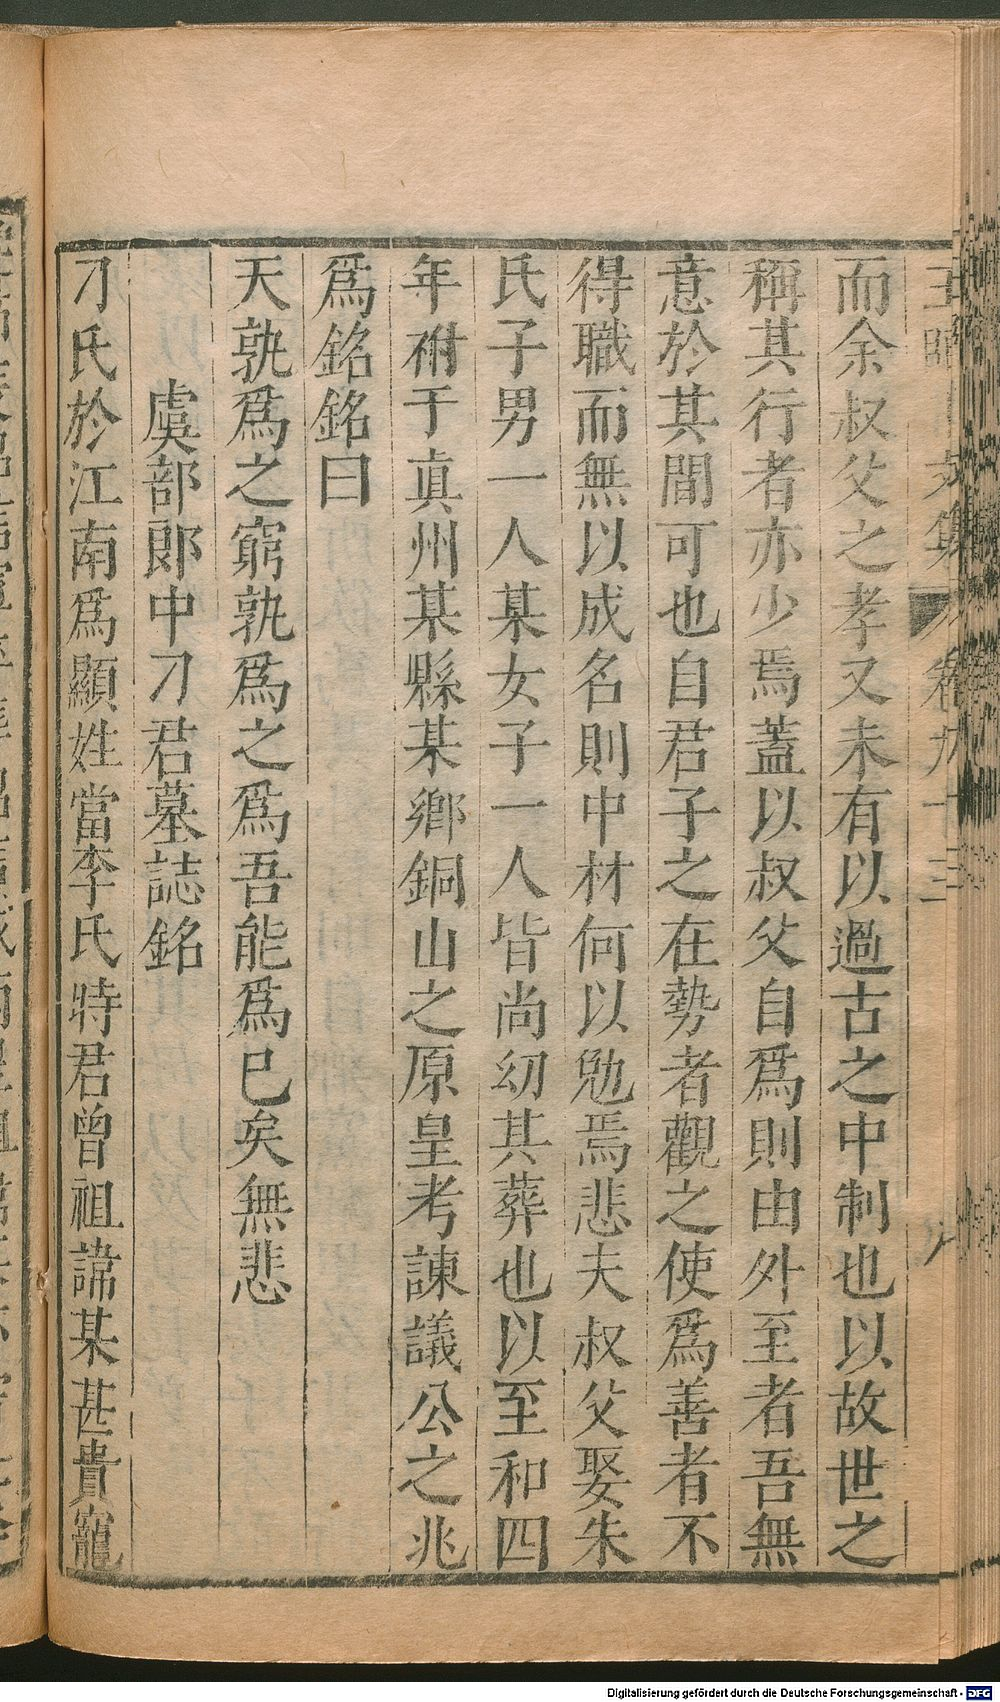 而余叔父之孝又未有以過古之中制也以故世之
稱其行者亦少焉蓋以叔父自爲則由外至者吾無
意於其間可也自君子之在勢者觀之使爲善者不
得職而無以成名則中材何以勉焉悲夫叔父娶朱
氏子男一人某女子一人皆尚幼其葬也以至和四
年祔于真州某縣某鄉銅山之原皇考諫議公之兆
爲銘銘曰
天孰爲之窮孰爲之爲吾能爲已矣無悲
虞部郎中刁君墓誌銘
刁氏於江南爲顯姓當李氏時君曾祖諱某甚貴寵
Digitalisierung gefördert durch die Deutsche Forschungsgemeinschaft - DFG